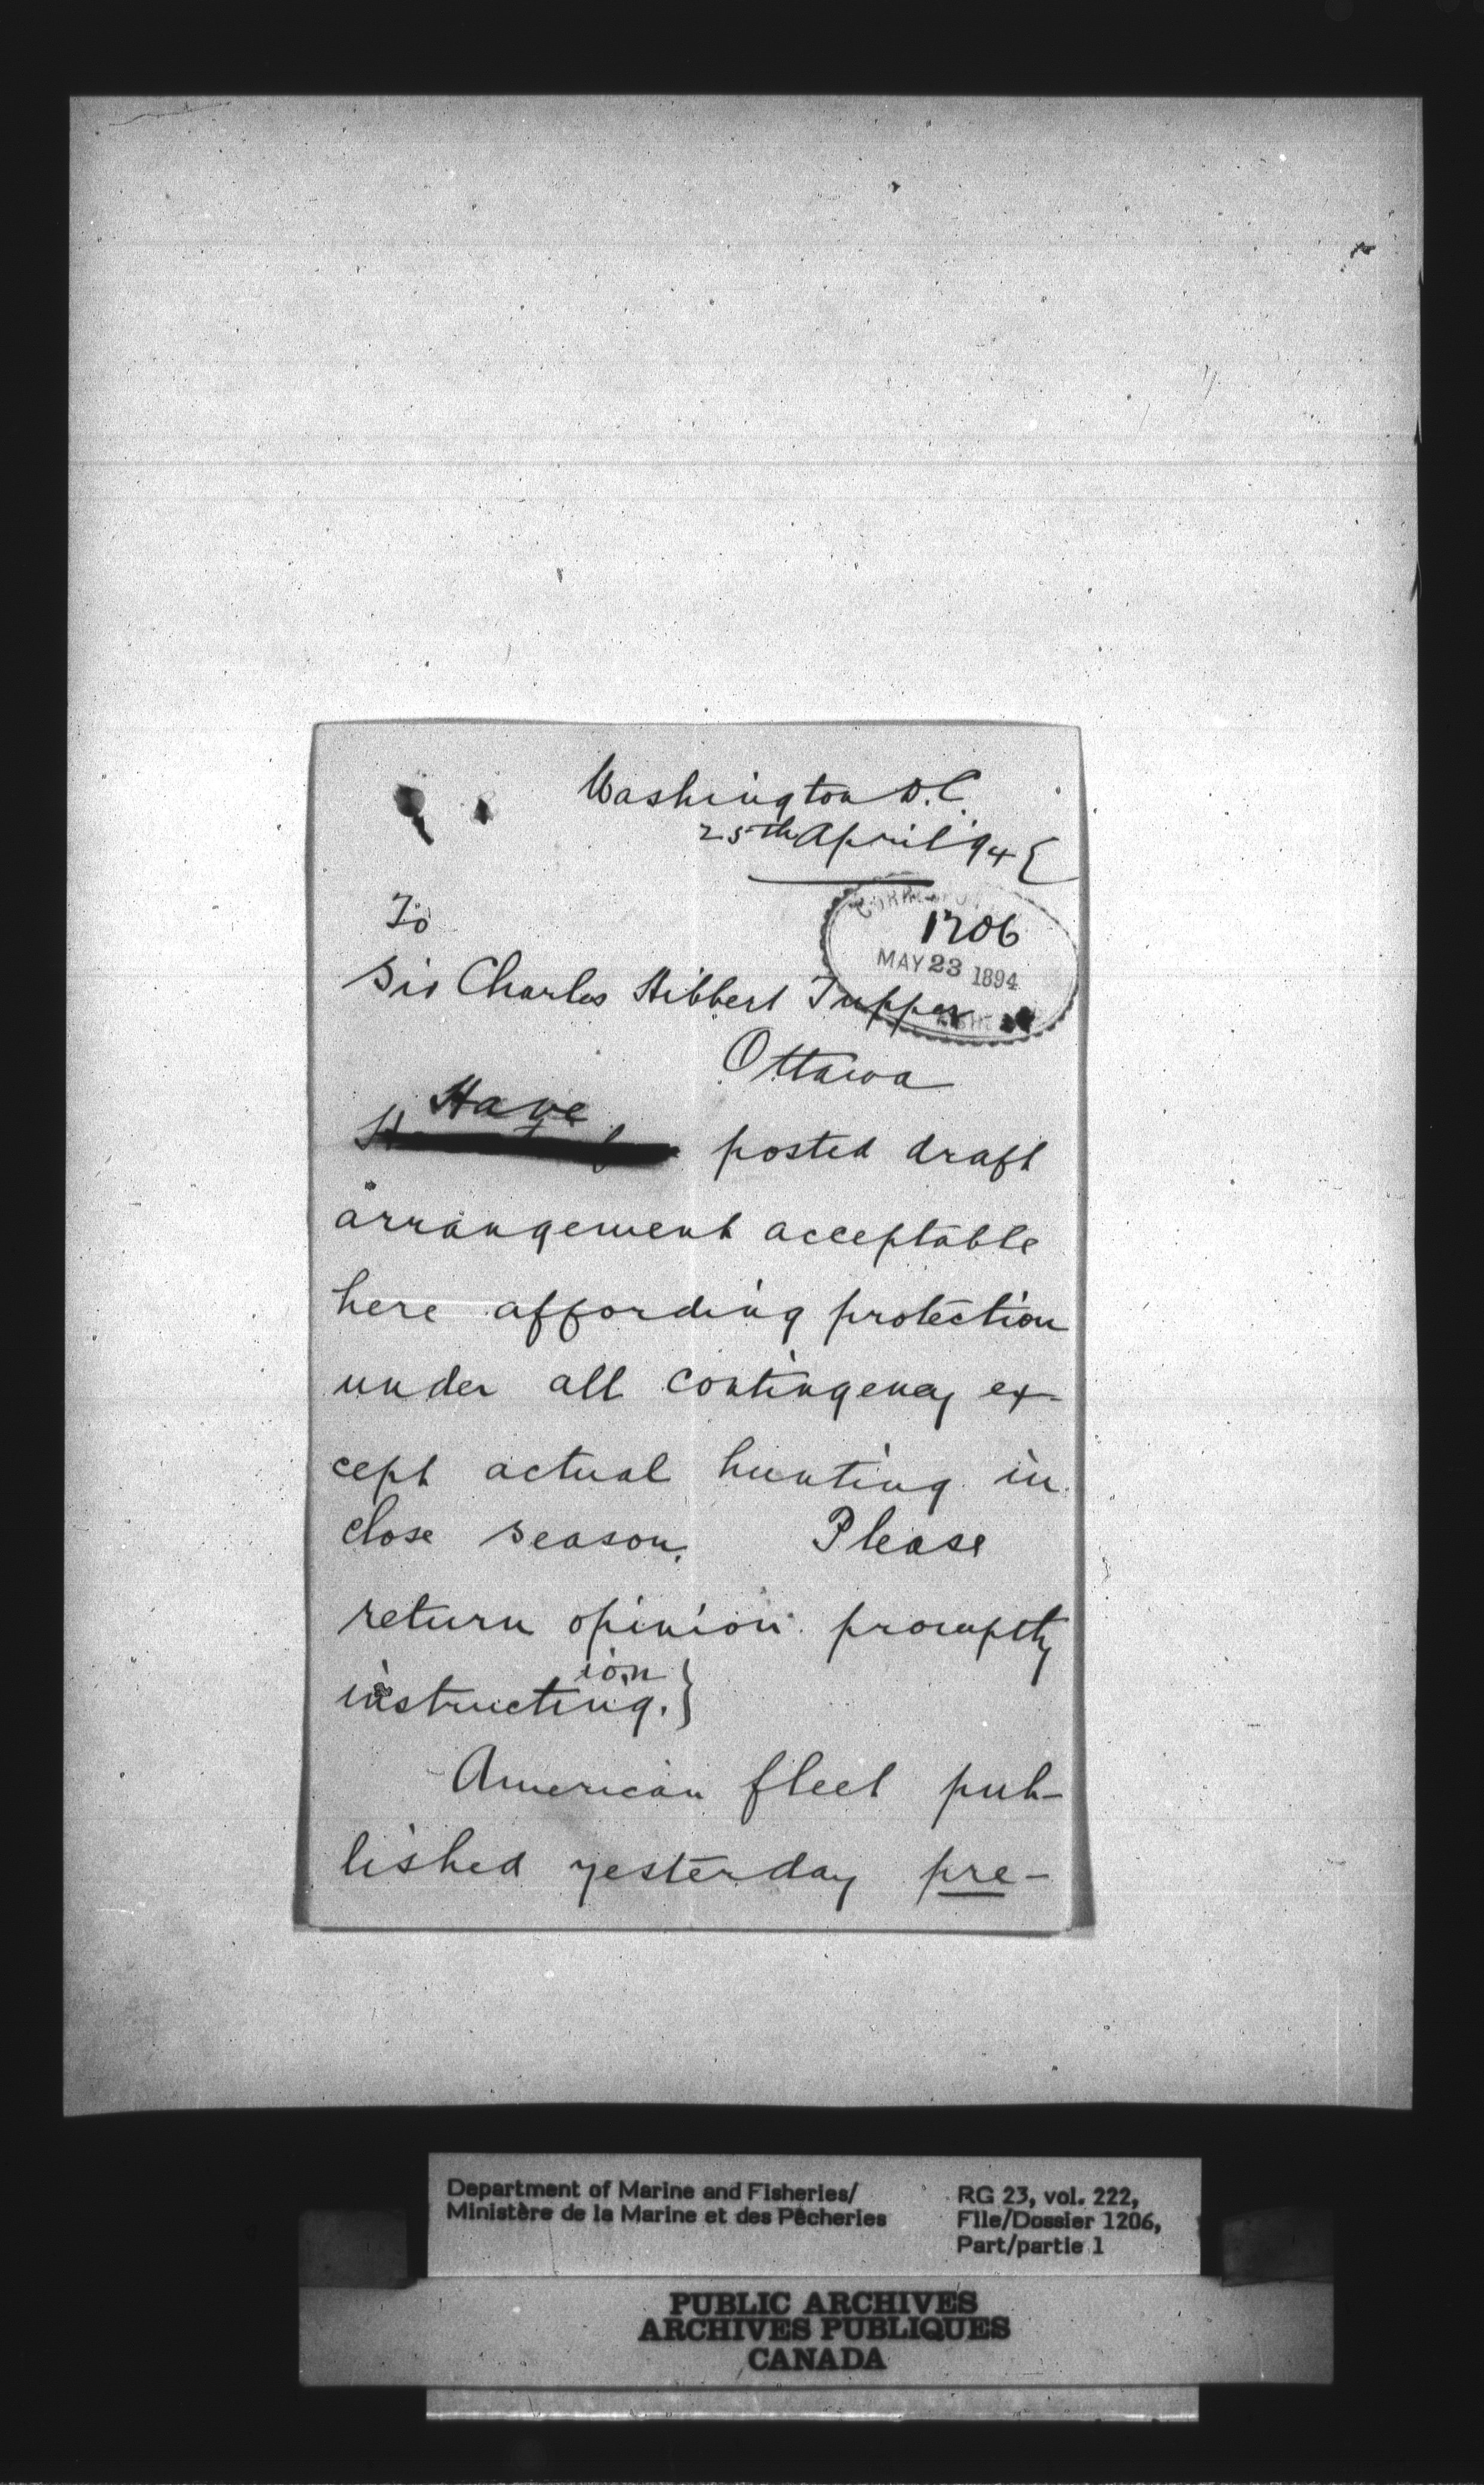 Washington D.C.
25th April '94
To
1206
MAY 23 1894
Sir Charles Hibbert Tupper
Ottawa
Have
posted draft
arrangement acceptable
here affording protection
under all contingency ex-
cept actual hunting in
close season. Please
return opinion promptly
ion
instructing.}
American fleet pub-
lished yesterday pre-
Department of Marine and Fisheries/
Ministère de la Marine et des Pêcheries
RG 23, vol. 222,
File/Dossier 1206,
Part/partie 1
PUBLIC ARCHIVES
ARCHIVES PUBLIQUES
CANADA